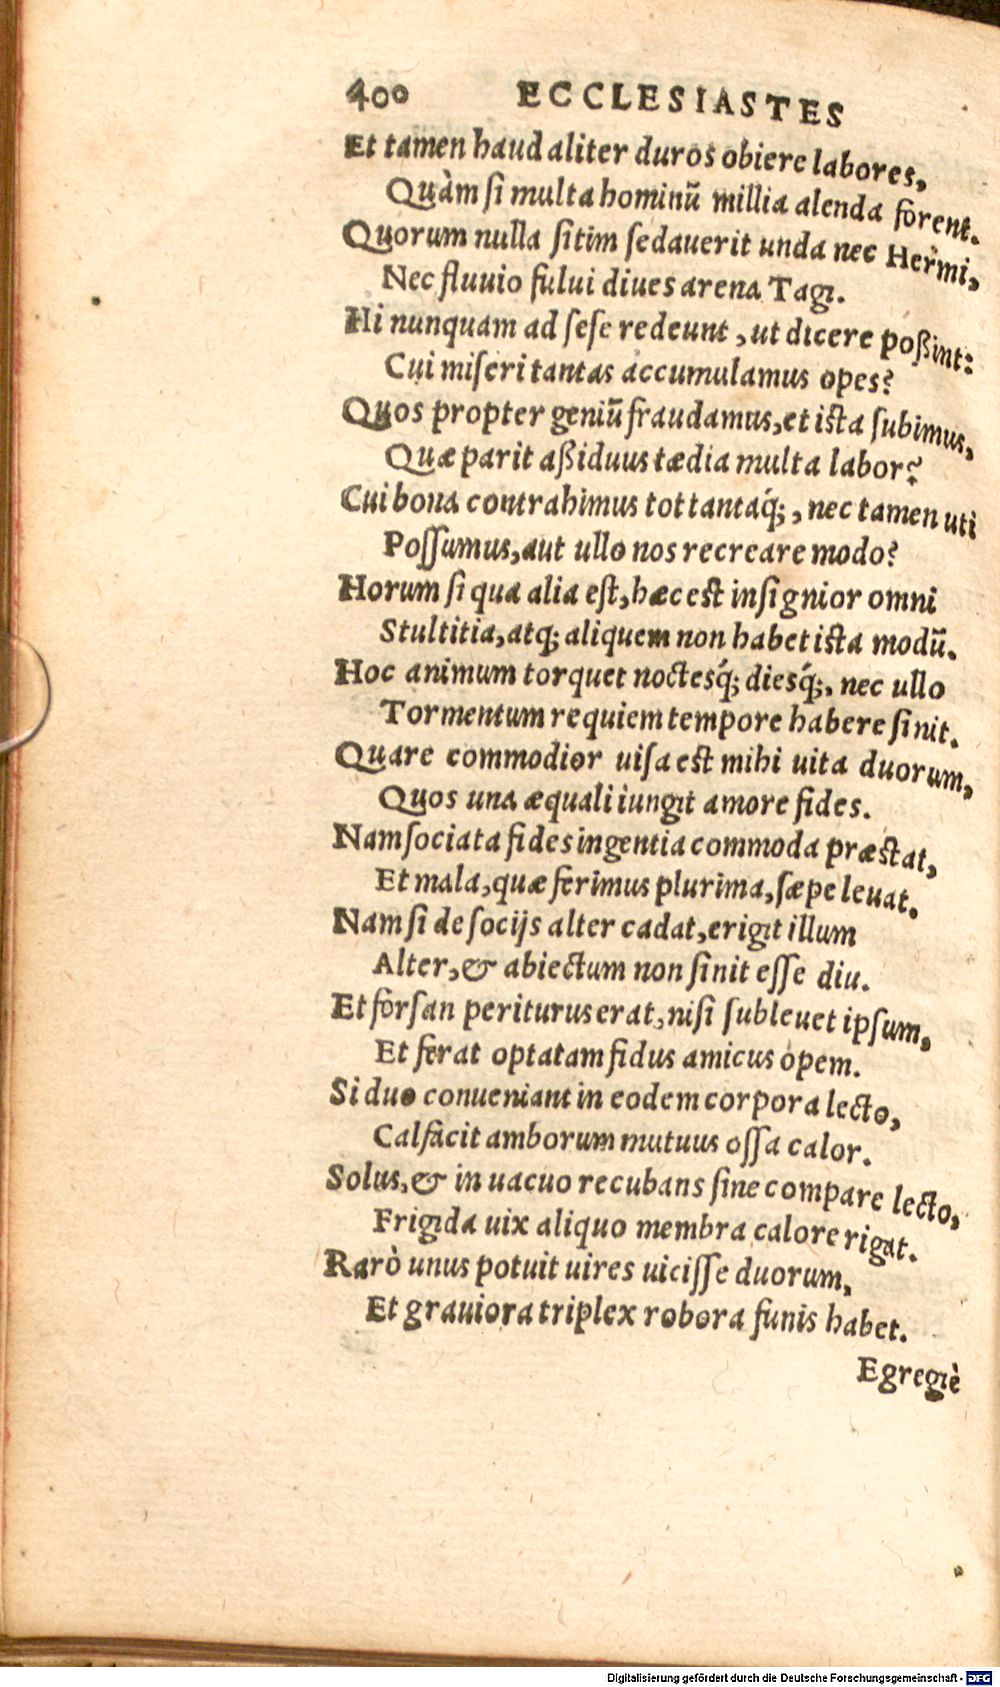 400 ECCLESIASTES
Et tamen haud aliter duros obiere labores,
Quàm ſi multa hominũ millia alenda forent.
Quorum nulla ſitim ſedauerit unda nec Hermi,
Nec fluuio fului diues arena Tagi.
Hi nunquam ad ſeſe redeunt, ut dicere poßint:
Cui miſeri tantas accumulamus opes?
Quos propter geniũ fraudamus, et iſta ſubimus,
Quæ parit aßiduus tædia multa labor?
Cui bona contrahimus tot tantaq́;, nec tamen uti
Poſſumus, aut ullo nos recreare modo?
Horum ſi qua alia eſt, hæc eſt inſignior omni
Stultitia, atq; aliquem non habet iſta modũ.
Hoc animum torquet noctesq́; diesq́;, nec ullo
Tormentum requiem tempore habere ſinit.
Quare commodior uiſa eſt mihi uita duorum,
Quos una æquali iungit amore fides.
Nam ſociata fides ingentia commoda præſtat,
Et mala, quæ ferimus plurima, ſæpe leuat.
Nam ſi de ſocijs alter cadat, erigit illum
Alter, & abiectum non ſinit eſſe diu.
Et forſan periturus erat, niſi ſubleuet ipſum,
Et ferat optatam fidus amicus opem.
Si duo conueniant in eodem corpora lecto,
Calfacit amborum mutuus oſſa calor.
Solus, & in uacuo recubans ſine compare lecto,
Frigida uix aliquo membra calore rigat.
Rarò unus potuit uires uiciſſe duorum,
Et grauiora triplex robora funis habet.
Egregiè
Digitalisierung gefördert durch die Deutsche Forschungsgemeinschaft - DFG